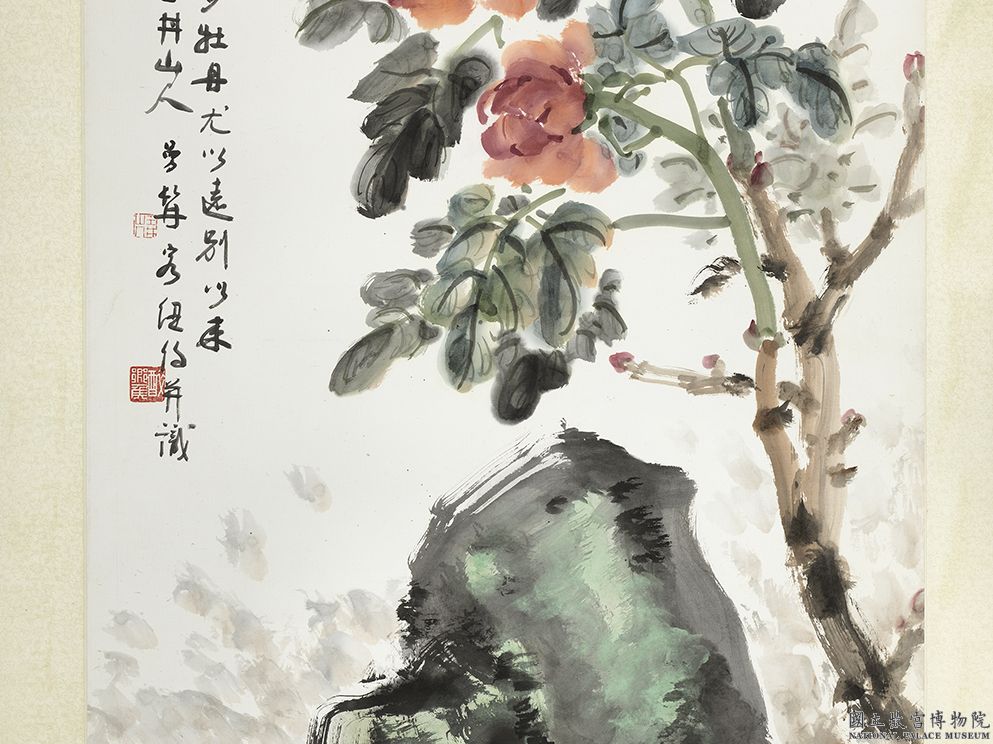 牡丹尤以遠別以來
井山人
髯客紐約并識
國立故宮博物院
NATIONAL PALACE MUSEUM